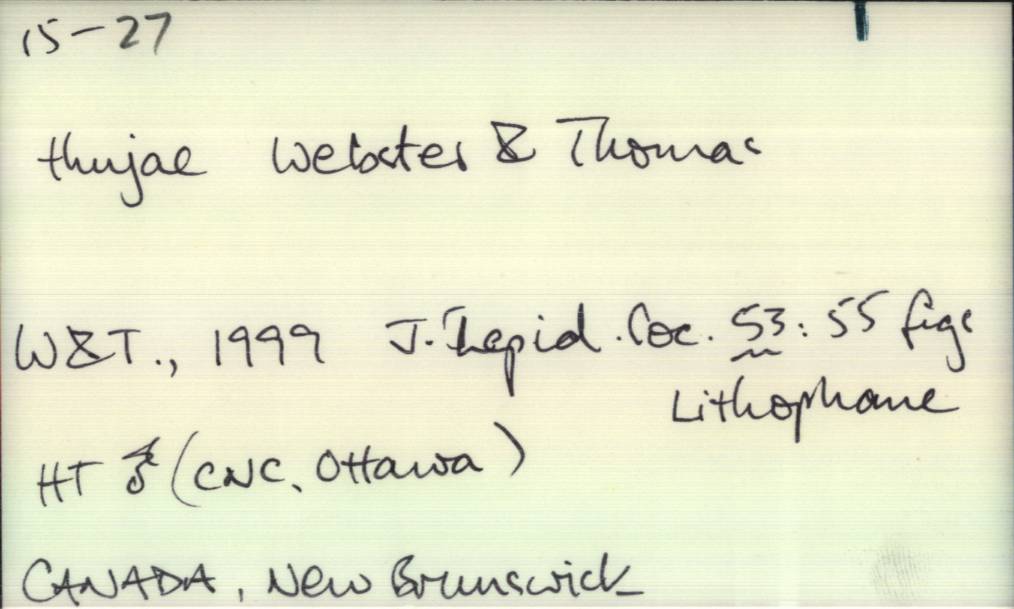 15-27
thujae Webster & Thomas
W&T., 1999 J. Lepid. Soc. 53: 55 figs
Lithophane
HT ♂ (CNC, Ottawa)
CANADA, New Brunswick